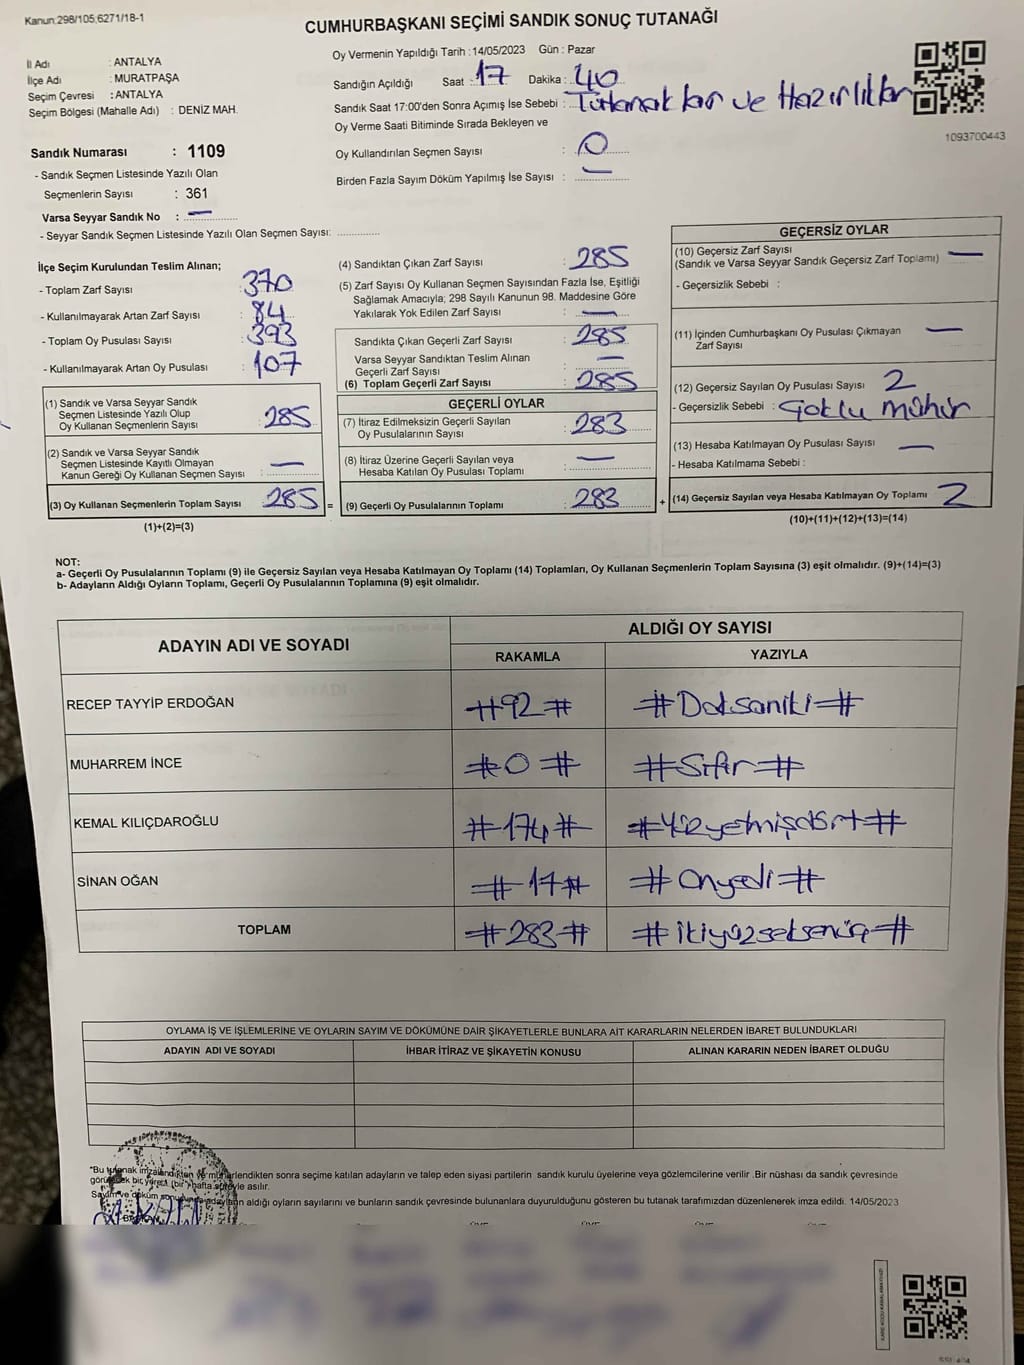 Kanun:298/105;6271/18-1
CUMHURBAŞKANI SEÇİMİ SANDIK SONUÇ TUTANAĞI
İl Adı : ANTALYA
İlçe Adı : MURATPAŞA
Seçim Çevresi : ANTALYA
Seçim Bölgesi (Mahalle Adı) : DENİZ MAH.
Oy Vermenin Yapıldığı Tarih : 14/05/2023 Gün : Pazar
Sandığın Açıldığı Saat : 17 Dakika : 40
Sandık Saat 17:00'den Sonra Açımış İse Sebebi : Tutanaklar ve Hazırlıklar
Oy Verme Saati Bitiminde Sırada Bekleyen ve
Oy Kullandırılan Seçmen Sayısı : 0
Birden Fazla Sayım Döküm Yapılmış İse Sayısı : —
1093700443
Sandık Numarası : 1109
- Sandık Seçmen Listesinde Yazılı Olan
Seçmenlerin Sayısı : 361
Varsa Seyyar Sandık No : —
- Seyyar Sandık Seçmen Listesinde Yazılı Olan Seçmen Sayısı:
İlçe Seçim Kurulundan Teslim Alınan;
- Toplam Zarf Sayısı : 370
- Kullanılmayarak Artan Zarf Sayısı : 84
- Toplam Oy Pusulası Sayısı : 393
- Kullanılmayarak Artan Oy Pusulası : 107
(1) Sandık ve Varsa Seyyar Sandık
Seçmen Listesinde Yazılı Olup
Oy Kullanan Seçmenlerin Sayısı : 285
(2) Sandık ve Varsa Seyyar Sandık
Seçmen Listesinde Kayıtlı Olmayan
Kanun Gereği Oy Kullanan Seçmen Sayısı : —
(3) Oy Kullanan Seçmenlerin Toplam Sayısı : 285 =
(1)+(2)=(3)
(4) Sandıktan Çıkan Zarf Sayısı : 285
(5) Zarf Sayısı Oy Kullanan Seçmen Sayısından Fazla İse, Eşitliği
Sağlamak Amacıyla; 298 Sayılı Kanunun 98. Maddesine Göre
Yakılarak Yok Edilen Zarf Sayısı : —
Sandıkta Çıkan Geçerli Zarf Sayısı : 285
Varsa Seyyar Sandıktan Teslim Alınan
Geçerli Zarf Sayısı : —
(6) Toplam Geçerli Zarf Sayısı : 285
GEÇERLİ OYLAR
(7) İtiraz Edilmeksizin Geçerli Sayılan
Oy Pusulalarının Sayısı : 283
(8) İtiraz Üzerine Geçerli Sayılan veya
Hesaba Katılan Oy Pusulası Toplamı : —
(9) Geçerli Oy Pusulalarının Toplamı : 283 +
GEÇERSİZ OYLAR
(10) Geçersiz Zarf Sayısı
(Sandık ve Varsa Seyyar Sandık Geçersiz Zarf Toplamı) —
- Geçersizlik Sebebi :
(11) İçinden Cumhurbaşkanı Oy Pusulası Çıkmayan
Zarf Sayısı —
(12) Geçersiz Sayılan Oy Pusulası Sayısı 2
- Geçersizlik Sebebi : Çoklu mühür
(13) Hesaba Katılmayan Oy Pusulası Sayısı —
- Hesaba Katılmama Sebebi :
(14) Geçersiz Sayılan veya Hesaba Katılmayan Oy Toplamı 2
(10)+(11)+(12)+(13)=(14)
NOT:
a- Geçerli Oy Pusulalarının Toplamı (9) ile Geçersiz Sayılan veya Hesaba Katılmayan Oy Toplamı (14) Toplamları, Oy Kullanan Seçmenlerin Toplam Sayısına (3) eşit olmalıdır. (9)+(14)=(3)
b- Adayların Aldığı Oyların Toplamı, Geçerli Oy Pusulalarının Toplamına (9) eşit olmalıdır.
ADAYIN ADI VE SOYADI ALDIĞI OY SAYISI
RAKAMLA YAZIYLA
RECEP TAYYİP ERDOĞAN #92# #Doksaniki#
MUHARREM İNCE #0# #Sıfır#
KEMAL KILIÇDAROĞLU #174# #Yüzyetmişdört#
SİNAN OĞAN #17# #Onyedi#
TOPLAM #283# #ikiyüzseksenüç#
OYLAMA İŞ VE İŞLEMLERİNE VE OYLARIN SAYIM VE DÖKÜMÜNE DAİR ŞİKAYETLERLE BUNLARA AİT KARARLARIN NELERDEN İBARET BULUNDUKLARI
ADAYIN ADI VE SOYADI İHBAR İTİRAZ VE ŞİKAYETİN KONUSU ALINAN KARARIN NEDEN İBARET OLDUĞU
"Bu tutanak imzalandıktan ve mühürlendikten sonra seçime katılan adayların ve talep eden siyasi partilerin sandık kurulu üyelerine veya gözlemcilerine verilir .Bir nüshası da sandık çevresinde
görülecek bir yere (bir) hafta süreyle asılır.
Sayım ve döküm aldığı oyların sayılarını ve bunların sandık çevresinde bulunanlara duyurulduğunu gösteren bu tutanak tarafımızdan düzenlenerek imza edildi. 14/05/2023